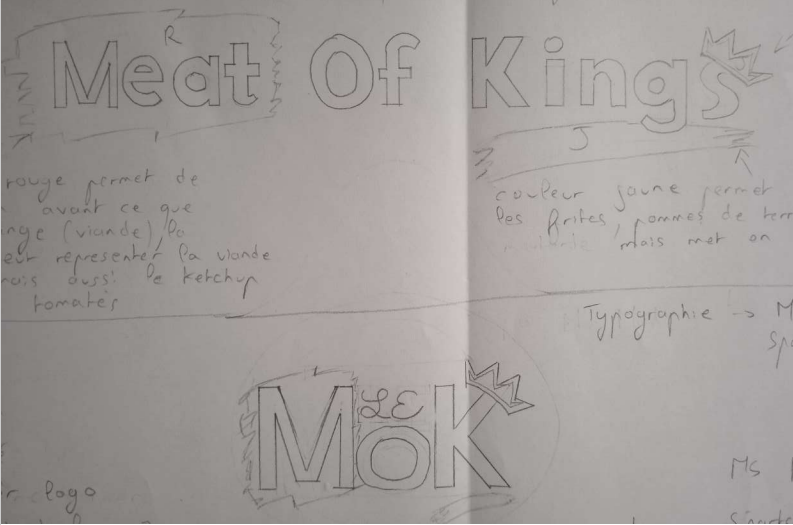 R
Meat Of Kings
J
rouge permet de
avant ce que
(viande), la
représenter la viande
mais aussi le ketchup
tomates
couleur jaune permet
les frites, pommes de terr
mais met on
Typographie -> M
Sp
LE
MoK
logo
Ms